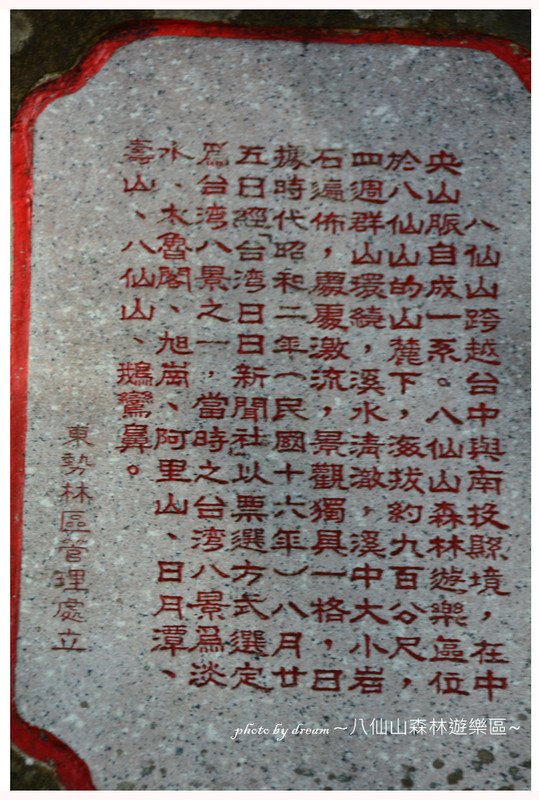 八仙山跨越台中與南投縣境，在中
央山脈自成一系。八仙山森林遊樂區位
於八仙山的山麓下，海拔約九百公尺，
四週群山環繞，溪水清澈，溪中大小岩
石遍佈，處處激流，景觀獨具一格，日
據時代昭和二年（民國十六年）八月廿
五日經「台湾日日新聞社」以票選方式選定
爲台湾八景之一，當時之台湾八景爲淡
水、太魯閣、旭崗、阿里山、日月潭、
壽山、八仙山、鵝鑾鼻。
東勢林區管理處立
photo by dream ~八仙山森林遊樂區~